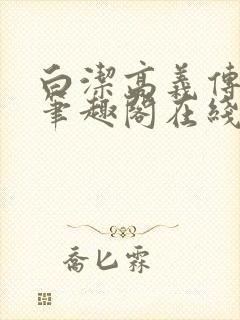 白潔高義傳
筆趣閣在綫
喬匕霖